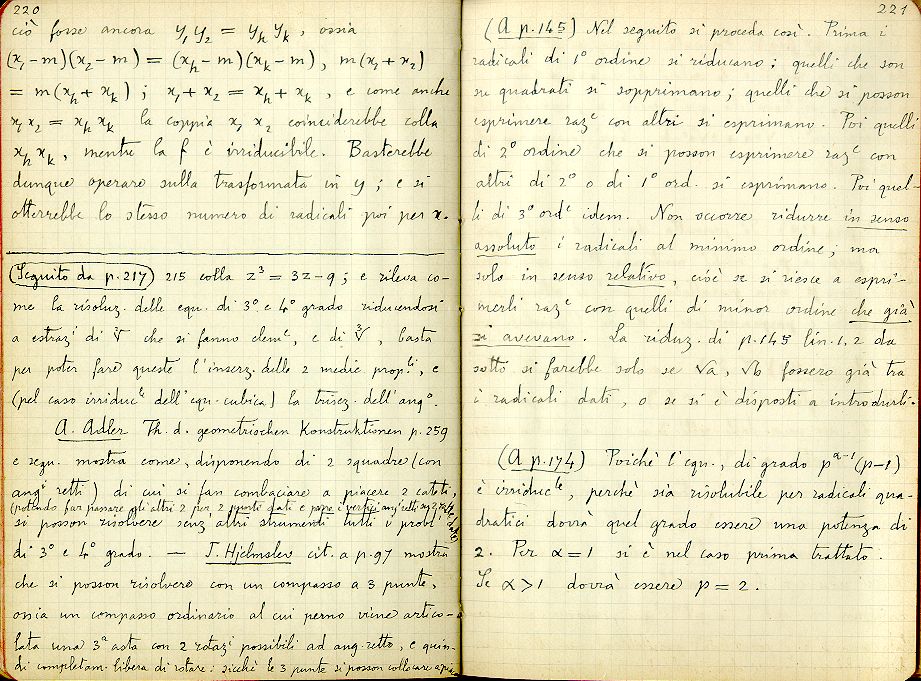 220
ciò fosse ancora y₁y₂ = yₕyₖ, ossia
(x₁-m)(x₂-m) = (xₕ-m)(xₖ-m), m(x₁+x₂)
= m(xₕ+xₖ); x₁+x₂ = xₕ+xₖ, e come anche
x₁x₂ = xₕxₖ la coppia x₁x₂ coinciderebbe colla
xₕxₖ, mentre la f è irriducibile. Basterebbe
dunque operare sulla trasformata in y; e si
otterrebbe lo stesso numero di radicali poi per x.
(Seguito da p. 217) 215 colla z³ = 3z-q; e rileva co-
me la risoluz. delle equ. di 3° e 4° grado riducendosi
a estraz¹ di √ che si fanno elemᵉ, e di ∛, basta
per poter fare queste l'inserz. delle 2 medie prop.ˡⁱ, e
(pel caso irriducˡᵉ dell'equ. cubica) la trisez. dell'ang°.
A. Adler Th. d. geometrischen Konstruktionen p. 259
e segu. mostra come, disponendo di 2 squadre (con
angⁱ retti) di cui si fan combaciare a piacere 2 cateti,
(potendo far passare gli altri 2 per 2 punti dati e i vertici ang¹ retti su 2 rette date)
si posson risolvere senz'altri strumenti tutti i problⁱ
di 3° e 4° grado. — J. Hjelmslev cit. a p. 97 mostra
che si posson risolvere con un compasso a 3 punte,
ossia un compasso ordinario al cui perno viene artico-
lata una 3ᵃ asta con 2 rotazⁱ possibili ad ang. retto, e quin-
di completam. libera di rotare: sicchè le 3 punte si posson collocare a piac
221
(A p. 145) Nel seguito si proceda così. Prima i
radicali di 1° ordine si riducano: quelli che son
su quadrati si sopprimano; quelli che si posson
esprimere razᵉ con altri si esprimano. Poi quelli
di 2° ordine che si posson esprimere razᵉ con
altri di 2° o di 1° ord. si esprimano. Poi quel-
li di 3° ordᵉ idem. Non occorre ridurre in senso
assoluto i radicali al minimo ordine; ma
solo in senso relativo, cioè se si riesce a espri-
merli razᵉ con quelli di minor ordine che già
si avevano. La riduz. di p. 145 lin. 1, 2 da
sotto si farebbe solo se √a, √b fossero già tra
i radicali dati, o se si è disposti a introdurli.
(A p. 174) Poichè l'equ., di grado pᵅ⁻¹(p-1)
è irriducˡᵉ, perchè sia risolubile per radicali qua-
dratici dovrà quel grado essere una potenza di
2. Per α=1 si è nel caso prima trattato.
Se α>1 dovrà essere p=2.